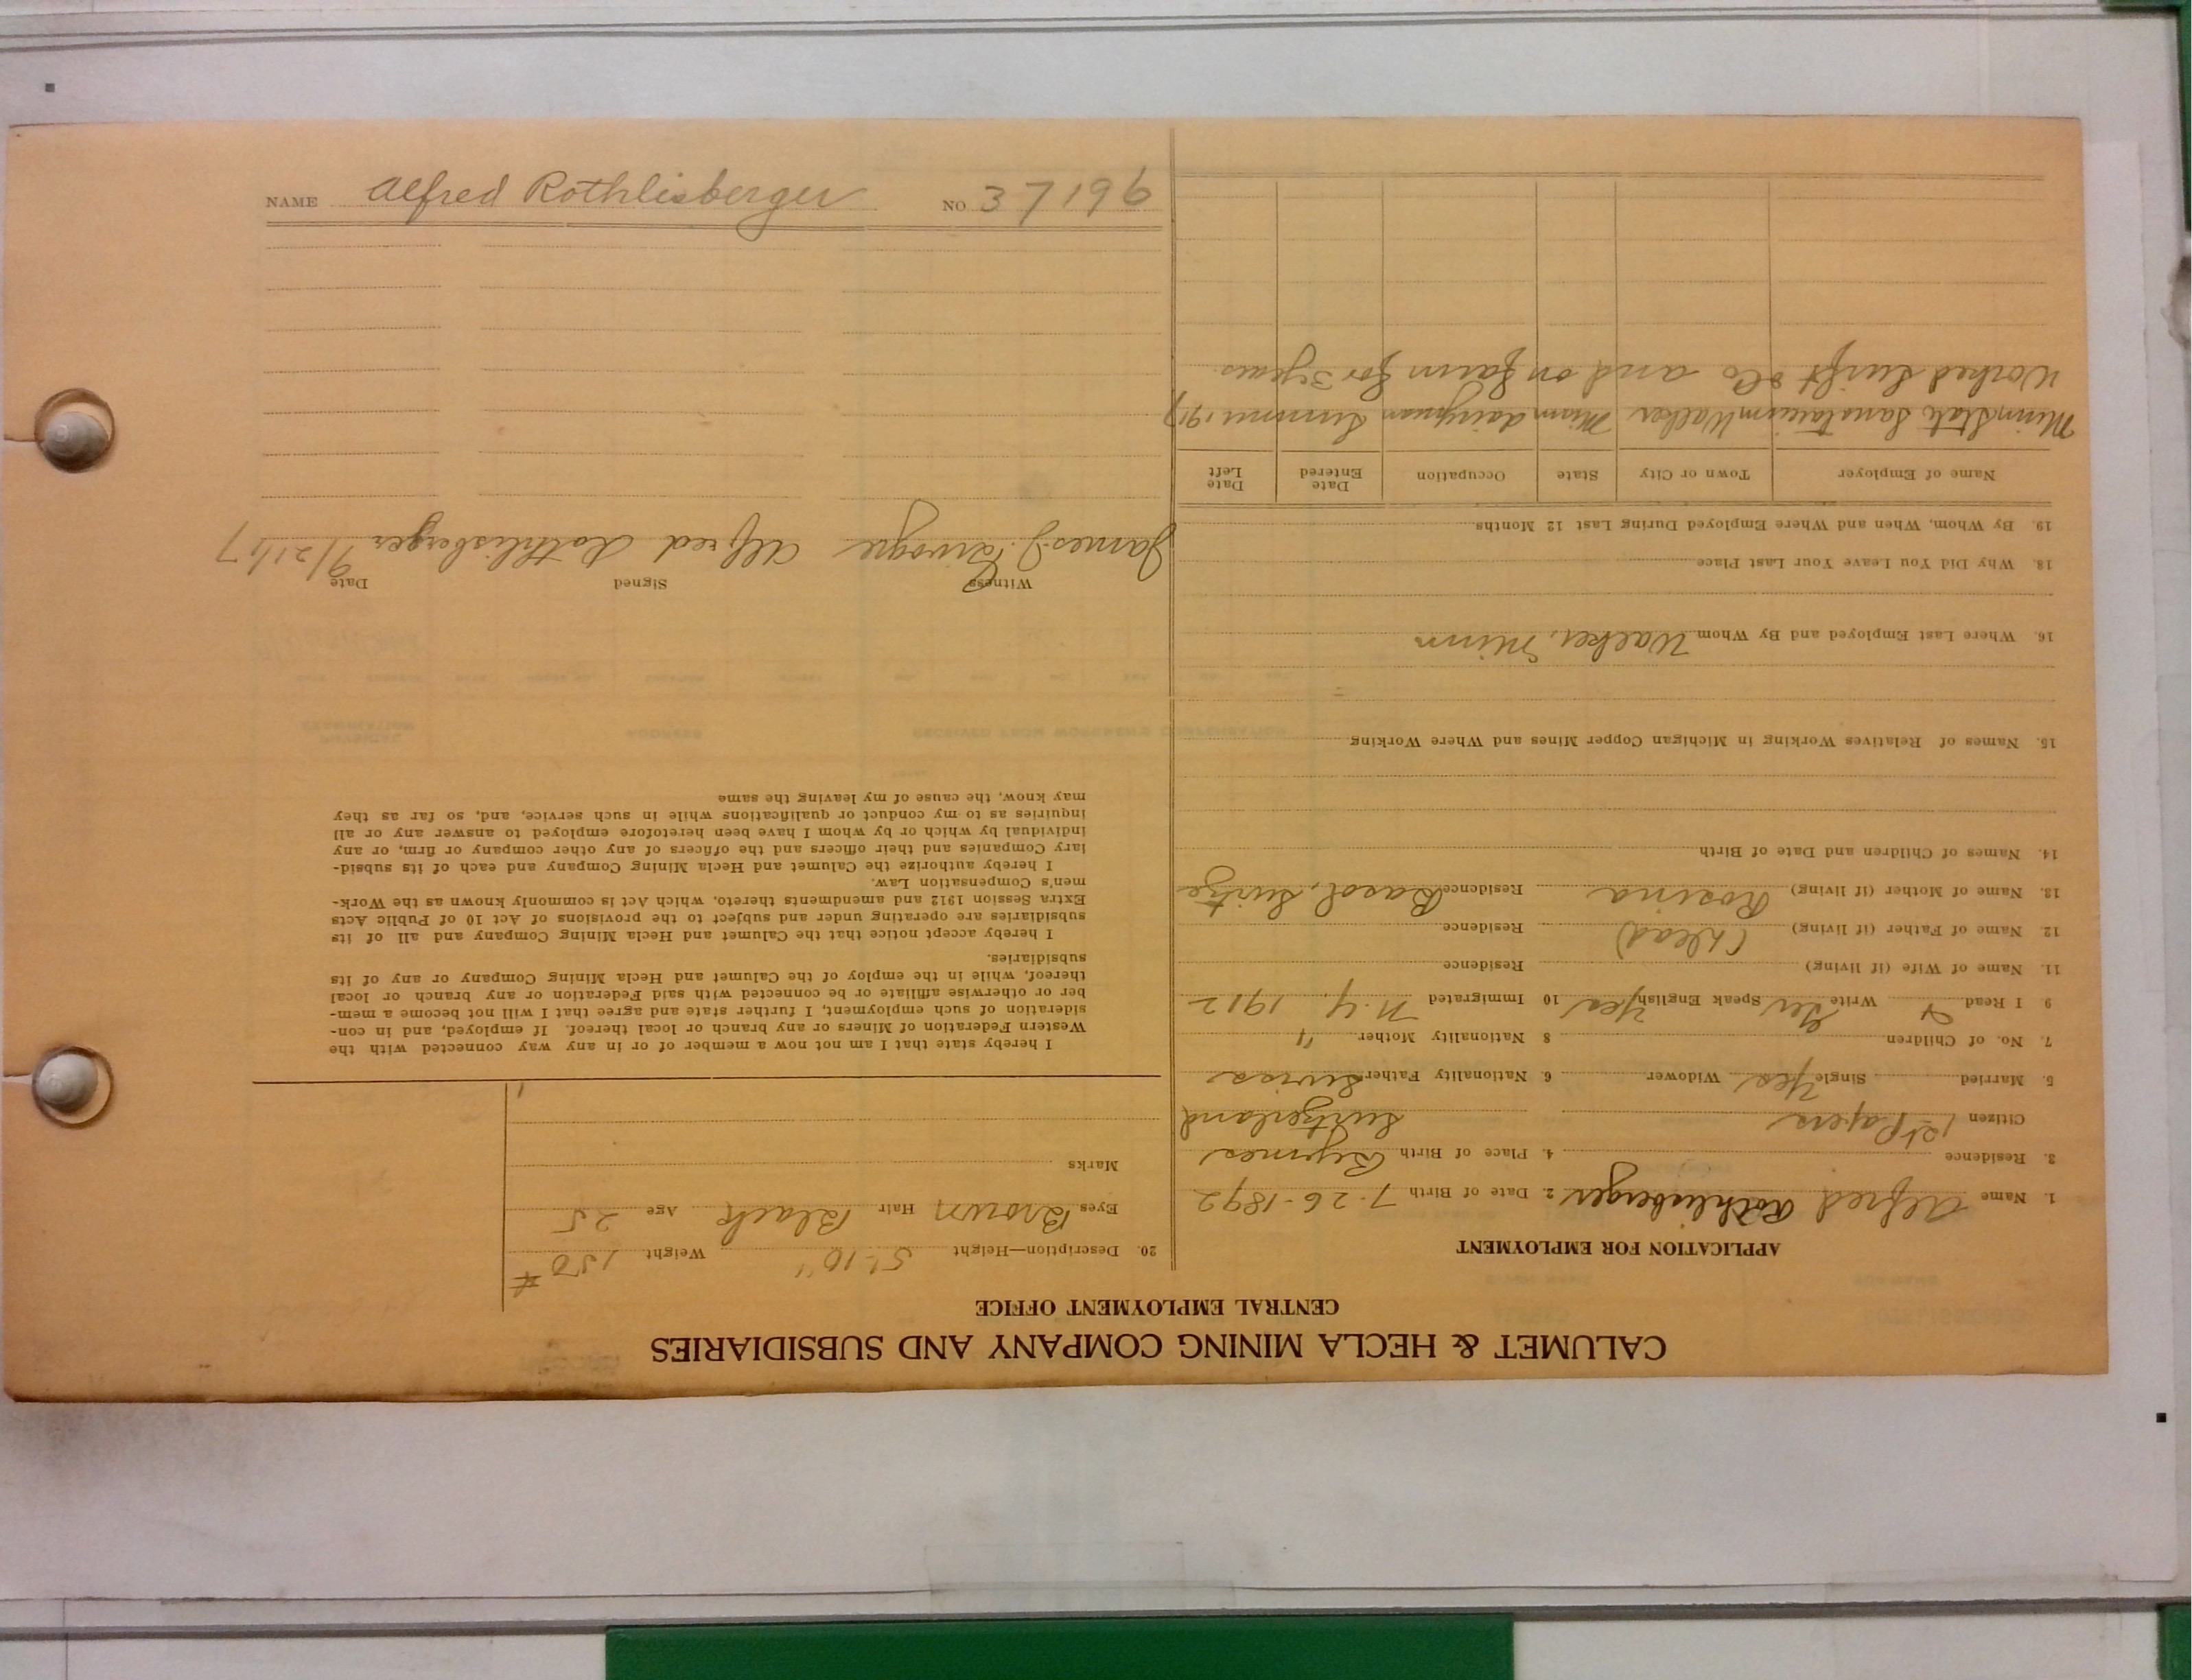 CALUMET & HECLA MINING COMPANY AND SUBSIDIARIES
CENTRAL EMPLOYMENT OFFICE
APPLICATION FOR EMPLOYMENT
1. Name Alfred Rothlisberger 2. Date of Birth 7-26-1892
3. Residence 4. Place of Birth
Citizen 1st Papers Switzerland
5. Married Single Yes Widower 6. Nationality Father Swiss
7. No. of Children 8 Nationality Mother "
9 I Read & Write Ger Speak English Yes 10 Immigrated N.Y. 1912
11. Name of Wife (if living) Residence
12. Name of Father (if living) (dead) Residence
13. Name of Mother (if living) Rosina Residence Basel, Switze
14. Names of Children and Date of Birth
15. Names of Relatives Working in Michigan Copper Mines and Where Working
16. Where Last Employed and By Whom Walker, Minn
18. Why Did You Leave Your Last Place
19. By Whom, When and Where Employed During Last 12 Months
Name of Employer Town or City State Occupation Date Entered Date Left
Minn State Sanatarium Walker Minn dairyman Summer 1917
Worked Swift & Co and on farm for 3 years
20. Description—Height 5'-10" Weight 150 #
Eyes Brown Hair Black Age 25
Marks
I hereby state that I am not now a member of or in any way connected with the
Western Federation of Miners or any branch or local thereof. If employed, and in con-
sideration of such employment, I further state and agree that I will not become a mem-
ber or otherwise affiliate or be connected with said Federation or any branch or local
thereof, while in the employ of the Calumet and Hecla Mining Company or any of its
subsidiaries.
I hereby accept notice that the Calumet and Hecla Mining Company and all of its
subsidiaries are operating under and subject to the provisions of Act 10 of Public Acts
Extra Session 1912 and amendments thereto, which Act is commonly known as the Work-
men's Compensation Law.
I hereby authorize the Calumet and Hecla Mining Company and each of its subsid-
iary Companies and their officers and the officers of any other company or firm, or any
individual by which or by whom I have been heretofore employed to answer any or all
inquiries as to my conduct or qualifications while in such service, and, so far as they
may know, the cause of my leaving the same
Witness Signed Date
James J. Alfred Rothlisberger 9/21/17
NAME Alfred Rothlisberger NO. 37196